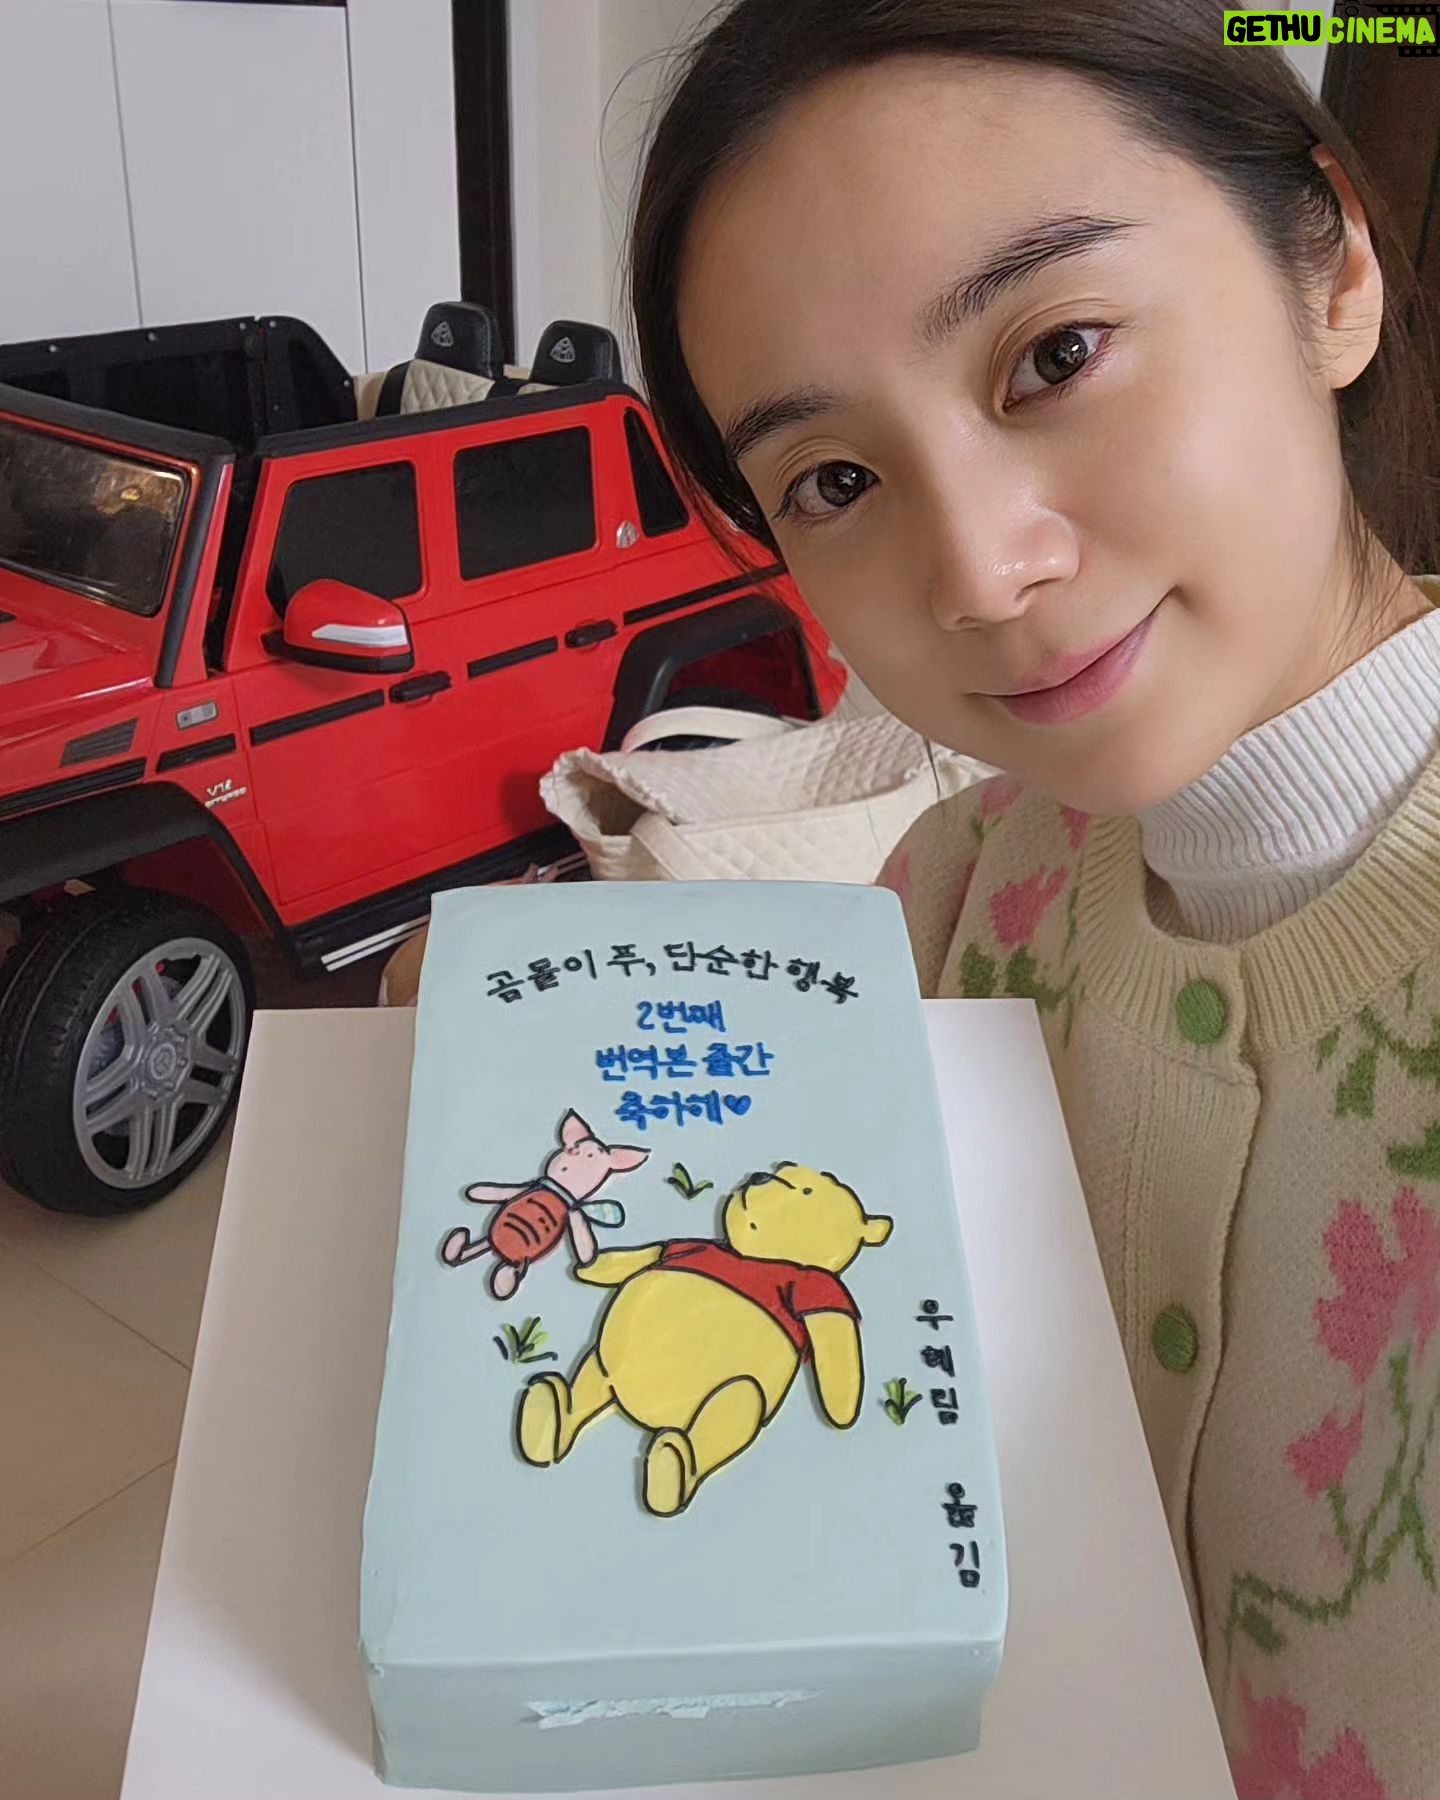 GETHU CINEMA
V12
곰돌이 푸, 단순한 행복
2번째
번역본 출간
축하해♥
우혜림 옮김